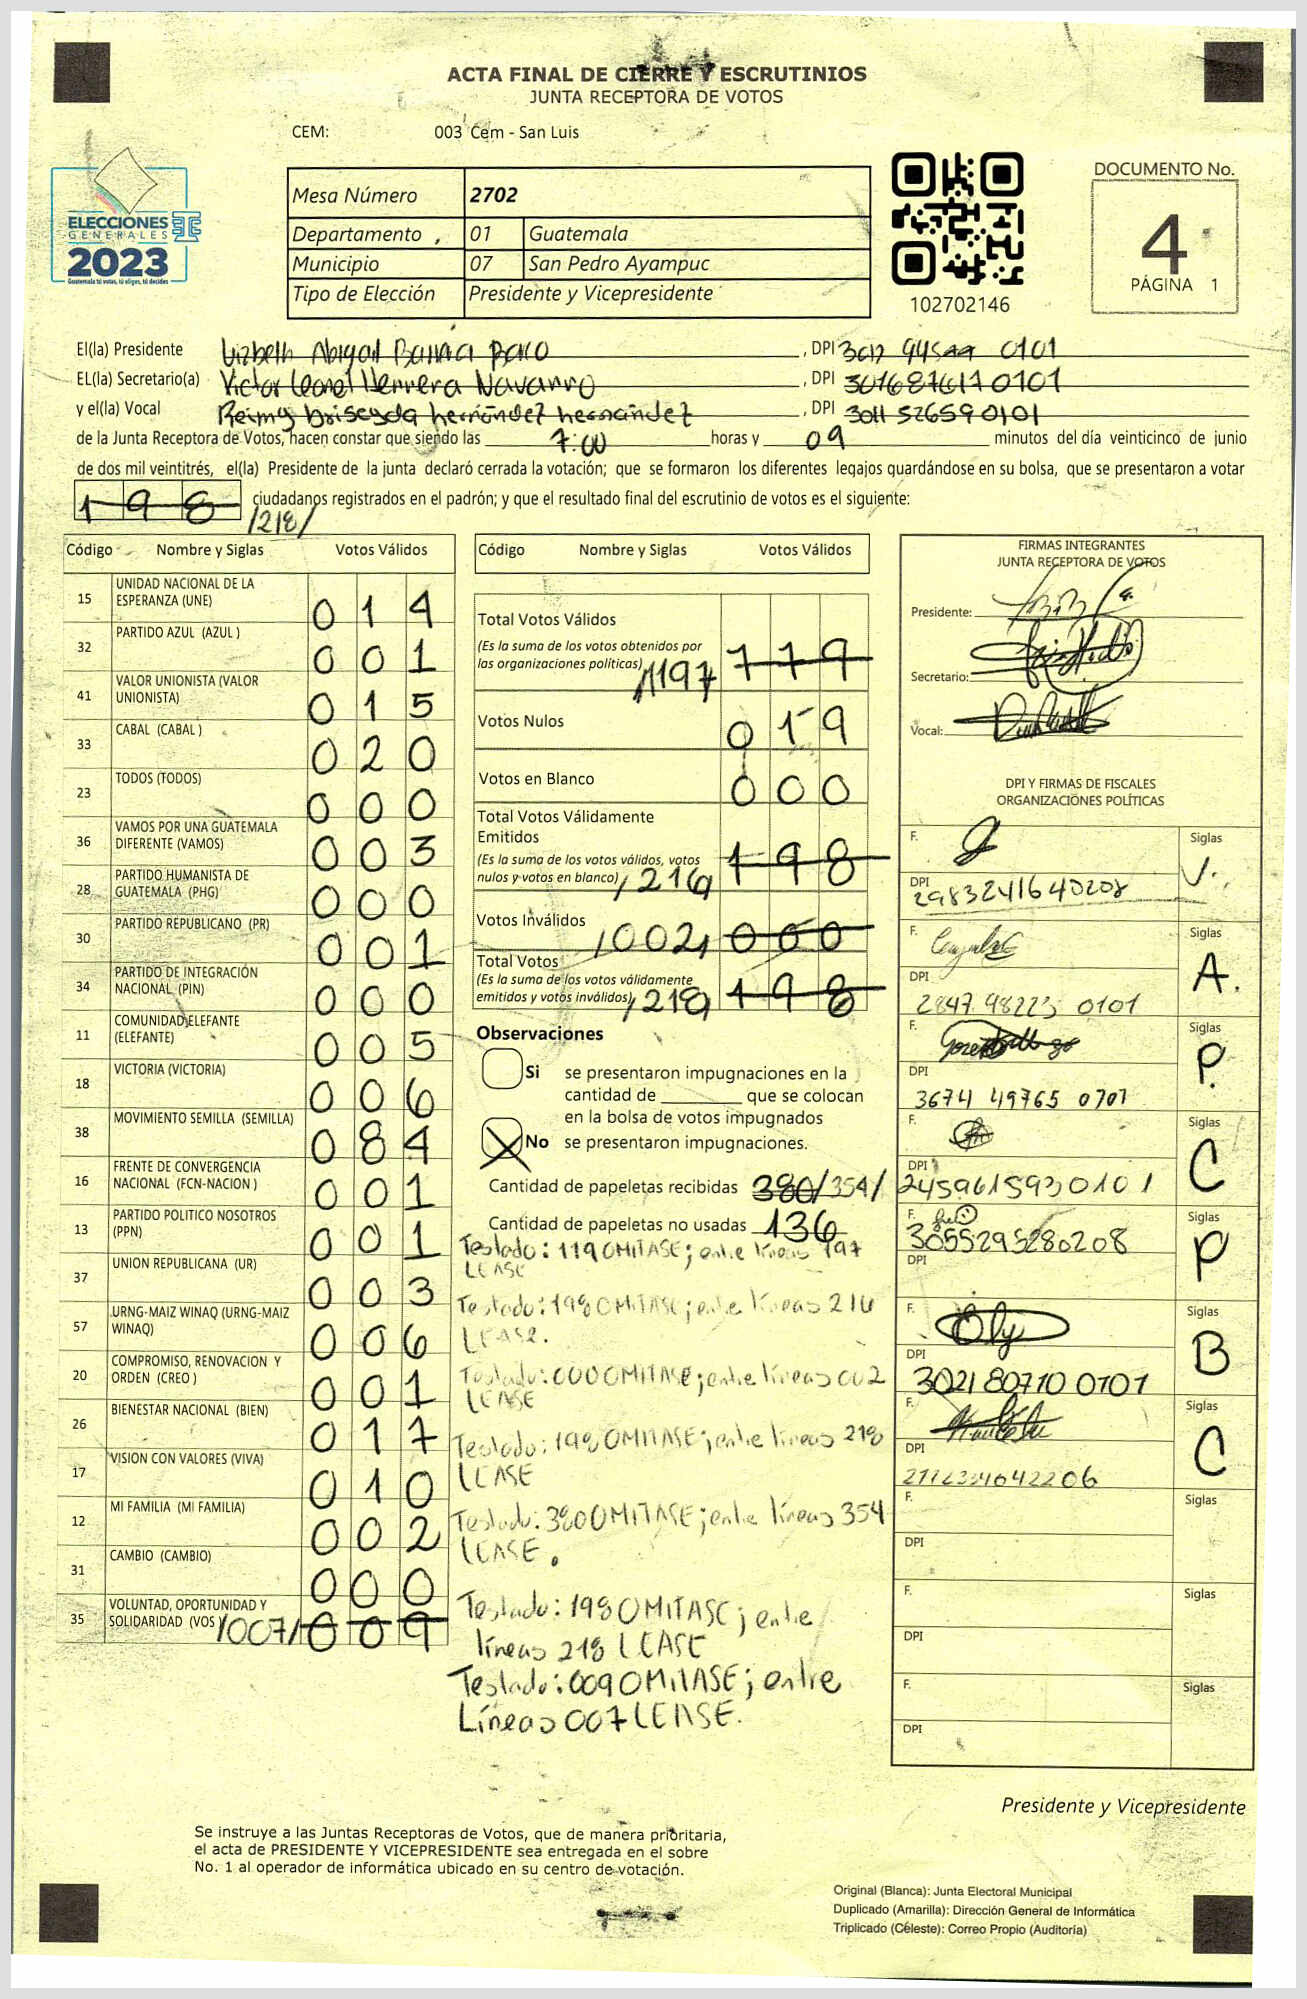 ACTA FINAL DE CIERRE Y ESCRUTINIOS
JUNTA RECEPTORA DE VOTOS
CEM: 003 Cem - San Luis
ELECCIONES
GENERALES
2023
Guatemala tú votas, tú eliges, tú decides
Mesa Número 2702
Departamento 01 Guatemala
Municipio 07 San Pedro Ayampuc
Tipo de Elección Presidente y Vicepresidente
102702146
DOCUMENTO No.
4
PÁGINA 1
El(la) Presidente Lizbeth Abigail , DPI 0101
EL(la) Secretario(a) Victor Leonel Herrera Navarro , DPI 3016876170101
y el(la) Vocal Reimy briseyda hernández hernández , DPI 3011 526590101
de la Junta Receptora de Votos, hacen constar que siendo las 7:00 horas y 09 minutos del día veinticinco de junio
de dos mil veintitrés, el(la) Presidente de la junta declaró cerrada la votación; que se formaron los diferentes legajos quardándose en su bolsa, que se presentaron a votar
198 ciudadanos registrados en el padrón; y que el resultado final del escrutinio de votos es el siguiente:
/218/
Código Nombre y Siglas Votos Válidos
15 UNIDAD NACIONAL DE LA ESPERANZA (UNE) 014
32 PARTIDO AZUL (AZUL ) 001
41 VALOR UNIONISTA (VALOR UNIONISTA) 015
33 CABAL (CABAL ) 020
23 TODOS (TODOS) 000
36 VAMOS POR UNA GUATEMALA DIFERENTE (VAMOS) 003
28 PARTIDO HUMANISTA DE GUATEMALA (PHG) 000
30 PARTIDO REPUBLICANO (PR) 001
34 PARTIDO DE INTEGRACIÓN NACIONAL (PIN) 000
11 COMUNIDAD ELEFANTE (ELEFANTE) 005
18 VICTORIA (VICTORIA) 006
38 MOVIMIENTO SEMILLA (SEMILLA) 084
16 FRENTE DE CONVERGENCIA NACIONAL (FCN-NACION ) 001
13 PARTIDO POLITICO NOSOTROS (PPN) 001
37 UNION REPUBLICANA (UR) 003
57 URNG-MAIZ WINAQ (URNG-MAIZ WINAQ) 006
20 COMPROMISO, RENOVACION Y ORDEN (CREO ) 001
26 BIENESTAR NACIONAL (BIEN) 017
17 VISION CON VALORES (VIVA) 010
12 MI FAMILIA (MI FAMILIA) 002
31 CAMBIO (CAMBIO) 000
35 VOLUNTAD, OPORTUNIDAD Y SOLIDARIDAD (VOS ) /007/ 009
Código Nombre y Siglas Votos Válidos
Total Votos Válidos
(Es la suma de los votos obtenidos por
las organizaciones politicas) /197 179
Votos Nulos 019
Votos en Blanco 000
Total Votos Válidamente
Emitidos
(Es la suma de los votos válidos, votos
nulos y votos en blanco) /216/ 198
Votos Inválidos /002/ 000
Total Votos
(Es la suma de los votos válidamente
emitidos y votos inválidos) /218/ 198
Observaciones
Si se presentaron impugnaciones en la
cantidad de ________ que se colocan
en la bolsa de votos impugnados
No se presentaron impugnaciones.
Cantidad de papeletas recibidas 380/354/
Cantidad de papeletas no usadas 136
Testado: 119 OMITASE; entre líneas 197
LEASE
Testado: 198 OMITASE; entre líneas 216
LEASE.
Testado: 000 OMITASE; entre líneas 002
LEASE
Testado: 198 OMITASE; entre líneas 218
LEASE
Testado: 380 OMITASE; entre líneas 354
LEASE.
Testado: 198 OMITASE; entre
líneas 218 LEASE
Testado: 009 OMITASE; entre
Líneas 007 LEASE.
FIRMAS INTEGRANTES
JUNTA RECEPTORA DE VOTOS
Presidente:
Secretario:
Vocal:
DPI Y FIRMAS DE FISCALES
ORGANIZACIONES POLÍTICAS
F. Siglas V.
DPI 2983241640208
F. Siglas A.
DPI 2847 98223 0101
F. Siglas P.
DPI 3674 49765 0701
F. Siglas C
DPI 2459615930101
F. Siglas P
3055295280208
DPI
F. Siglas B
DPI 3021807100101
F. Siglas C
DPI
F. Siglas
DPI
F. Siglas
DPI
F. Siglas
DPI
Presidente y Vicepresidente
Se instruye a las Juntas Receptoras de Votos, que de manera prioritaria,
el acta de PRESIDENTE Y VICEPRESIDENTE sea entregada en el sobre
No. 1 al operador de informática ubicado en su centro de votación.
Original (Blanca): Junta Electoral Municipal
Duplicado (Amarilla): Dirección General de Informática
Triplicado (Céleste): Correo Propio (Auditoría)